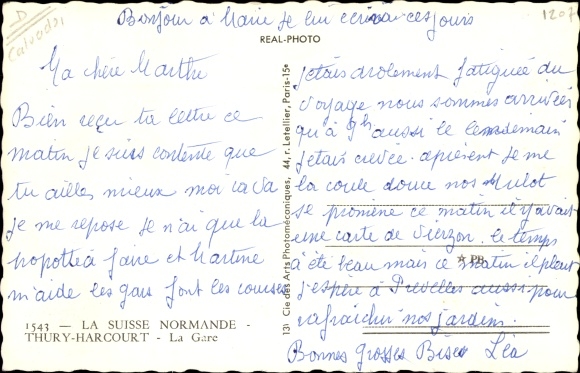 Bonjour à Marie je lui écrirai ces jours
D
Calvados
1207
REAL-PHOTO
Ma chère Marthe
Bien reçu ta lettre ce
matin je suis contente que
tu ailles mieux moi ca va
je me repose je n'ai que la
popotte a faire et Martine
m'aide les gars font les courses
1543 — LA SUISSE NORMANDE -
THURY-HARCOURT - La Gare
131 Cie des Arts Photomécaniques, 44, r. Letellier, Paris-15e
jetais drolement fatiguée du
voyage nous sommes arrivées
qu'à 9h aussi le lendemain
jetais crevée apresent je me
la coule douce nos Mulot
se promène ce matin il y avait
une carte de Vierzon. le temps
★ PB
à été beau mais ce matin il pleut
j'espère à aussi pour
rafraichir nos jardins.
Bonnes Grosses Bises Léa